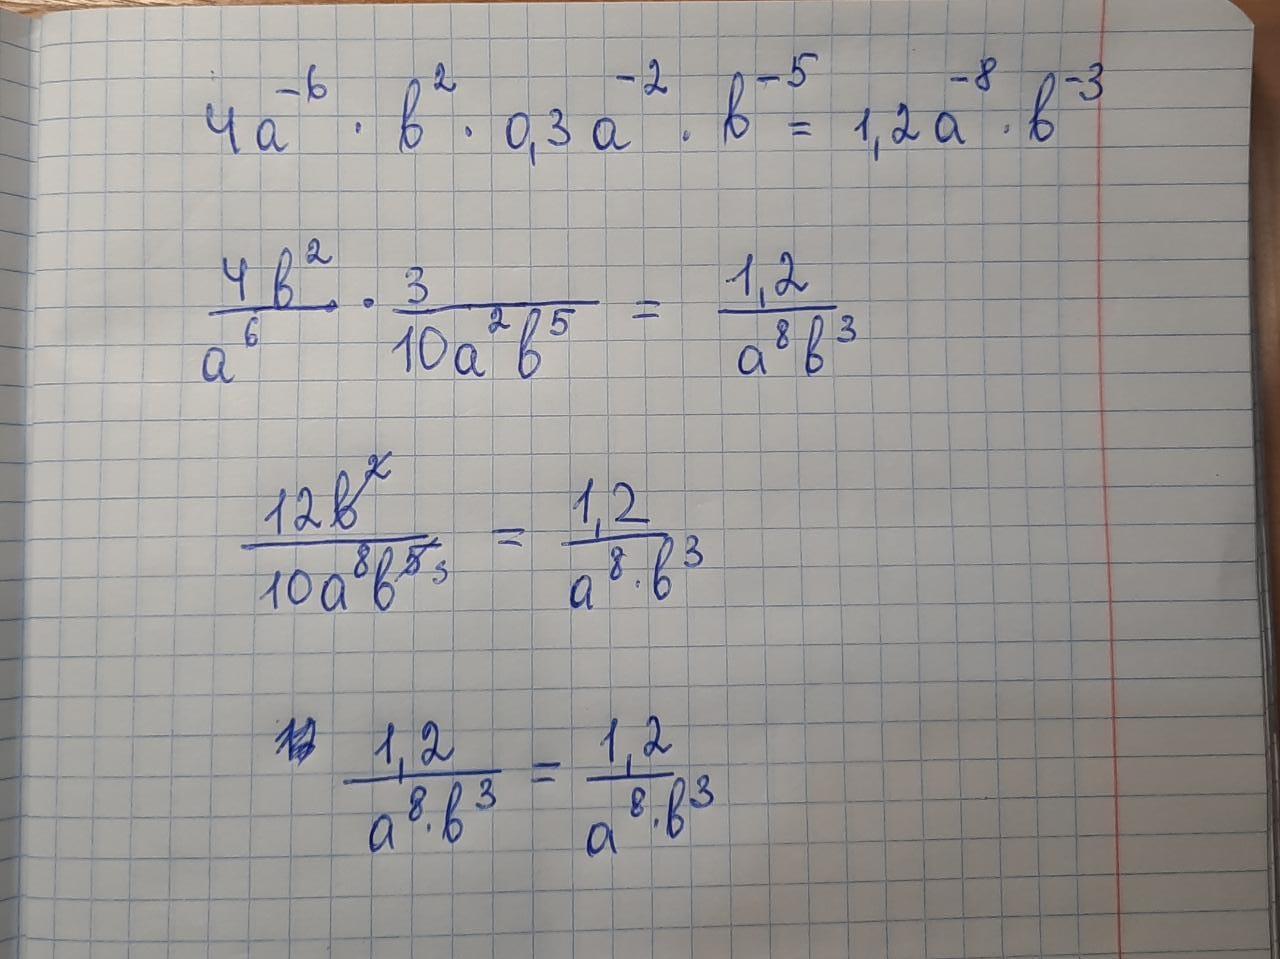 4a⁻⁶ · b² · 0,3a⁻² · b⁻⁵ = 1,2a⁻⁸ · b⁻³
4b²/a⁶ · 3/10a²b⁵ = 1,2/a⁸b³
12b²/10a⁸b⁵ 3 = 1,2/a⁸·b³
12 1,2/a⁸·b³ = 1,2/a⁸·b³